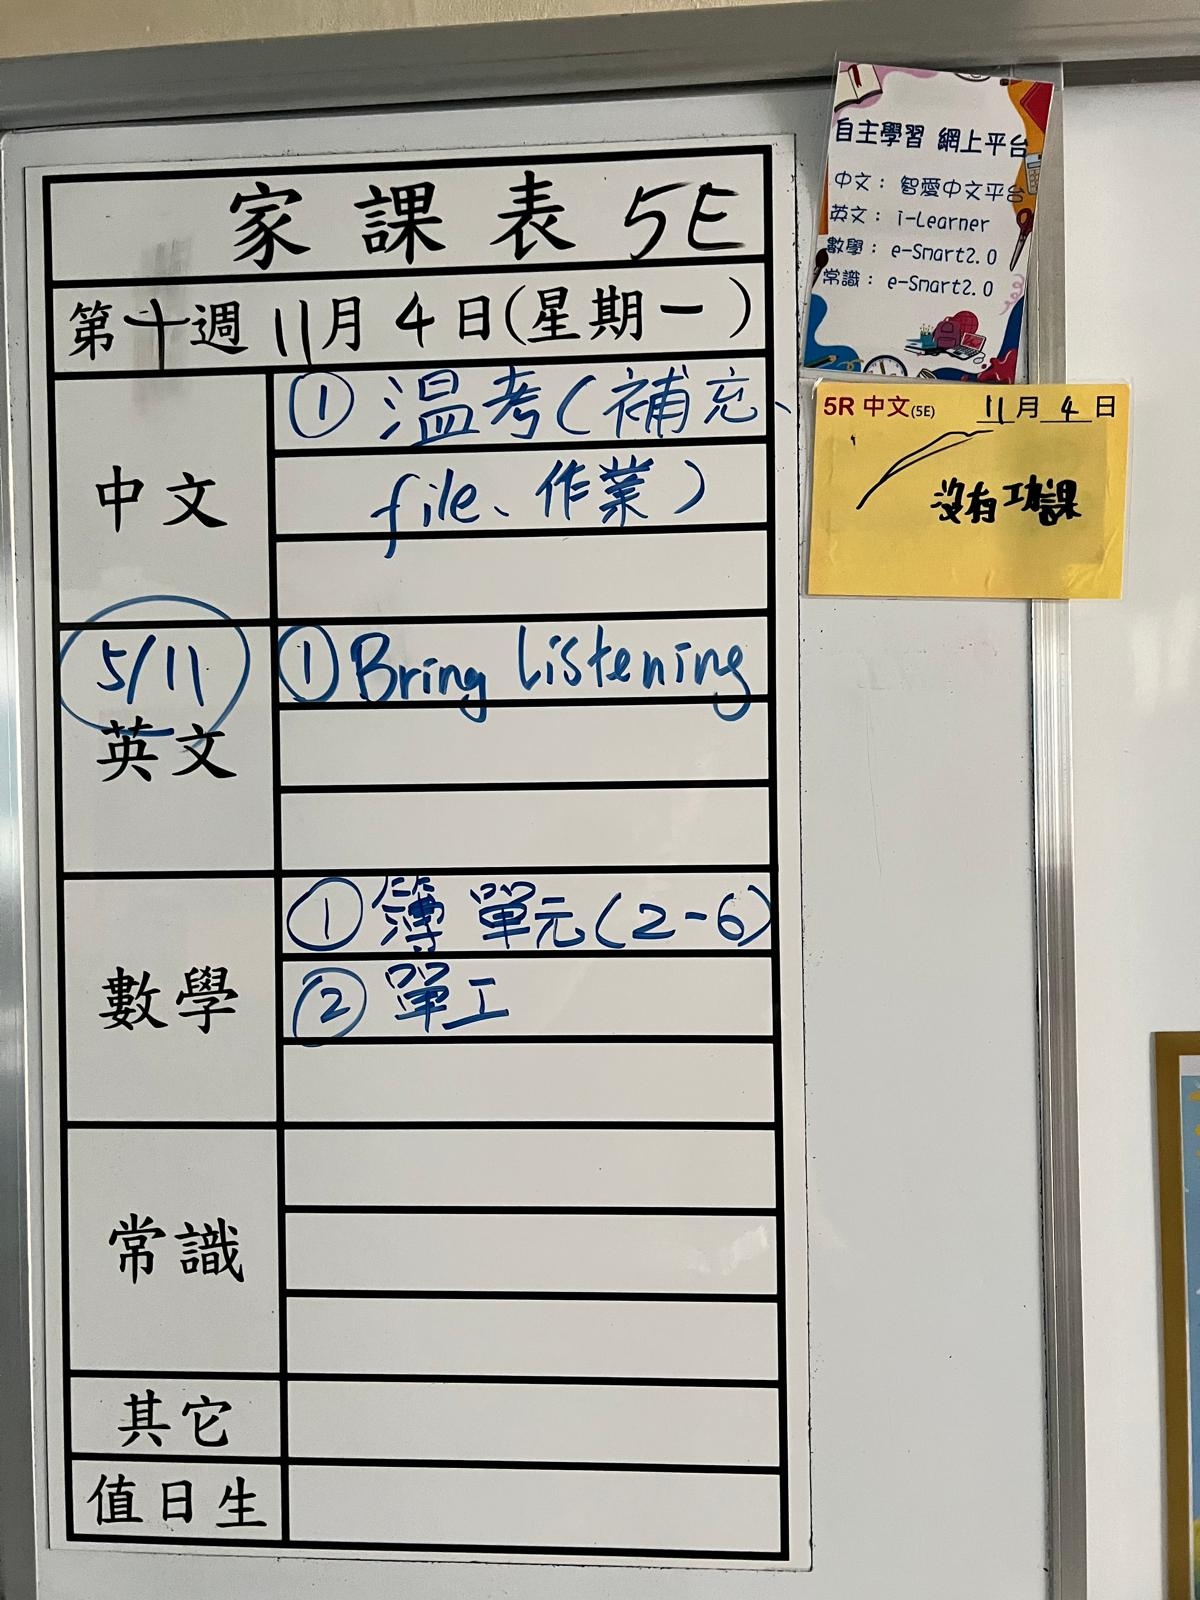 家課表 5E
第十週 11月4日(星期一)
中文
① 温考(補充、
file、作業)
5/11
英文
① Bring listening
數學
① 簿 單元(2-6)
② 單工
常識
其它
值日生
自主學習 網上平台
中文： 智愛中文平台
英文： i-Learner
數學： e-Smart2.0
常識： e-Smart2.0
5R 中文(5E) 11月4日
沒有功課